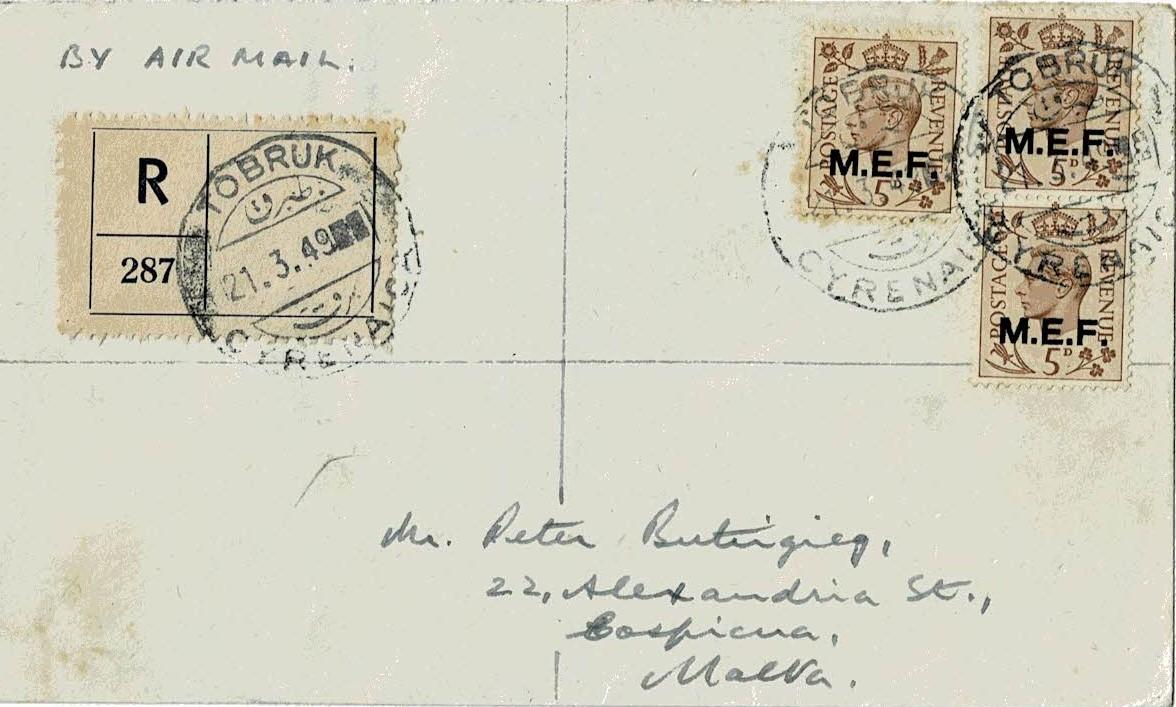 BY AIR MAIL.
R
287
TOBRUK
طبرق
21.3.49
برقة
CYRENAICA
POSTAGE REVENUE
M.E.F.
5D
TOBRUK
CYRENAICA
POSTAGE REVENUE
M.E.F.
5D
TOBRUK
CYRENAICA
POSTAGE REVENUE
M.E.F.
5D
Mr. Peter Buttigieg,
22, Alexandria St.,
Cospicua,
Malta.